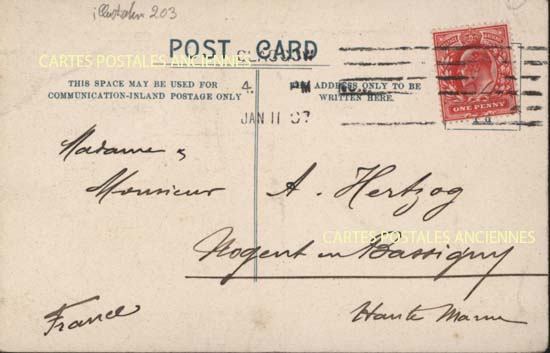 illustrateur 203
CARTES POSTALES ANCIENNES
POST CARD
GLASGOW
THIS SPACE MAY BE USED FOR
COMMUNICATION-INLAND POSTAGE ONLY
4. PM
JAN 11 07
ADDRESS ONLY TO BE
WRITTEN HERE.
ONE PENNY
Madame &
Monsieur A. Hertzog
CARTES POSTALES ANCIENNES
Nogent en Bassigny
France
Haute Marne